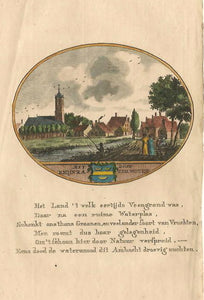 Het Land 't welk eertijds Veengrond was,
Daar na een ruime Waterplas,
Schenkt ons thans Graanen, en veelerleÿ soort van Vruchten,
Men roemt dus haar gelegenheid,
Om 't schoon hier door Natuur verspreid,
Eens deed de watersnood dit Ambacht droevig zuchten.